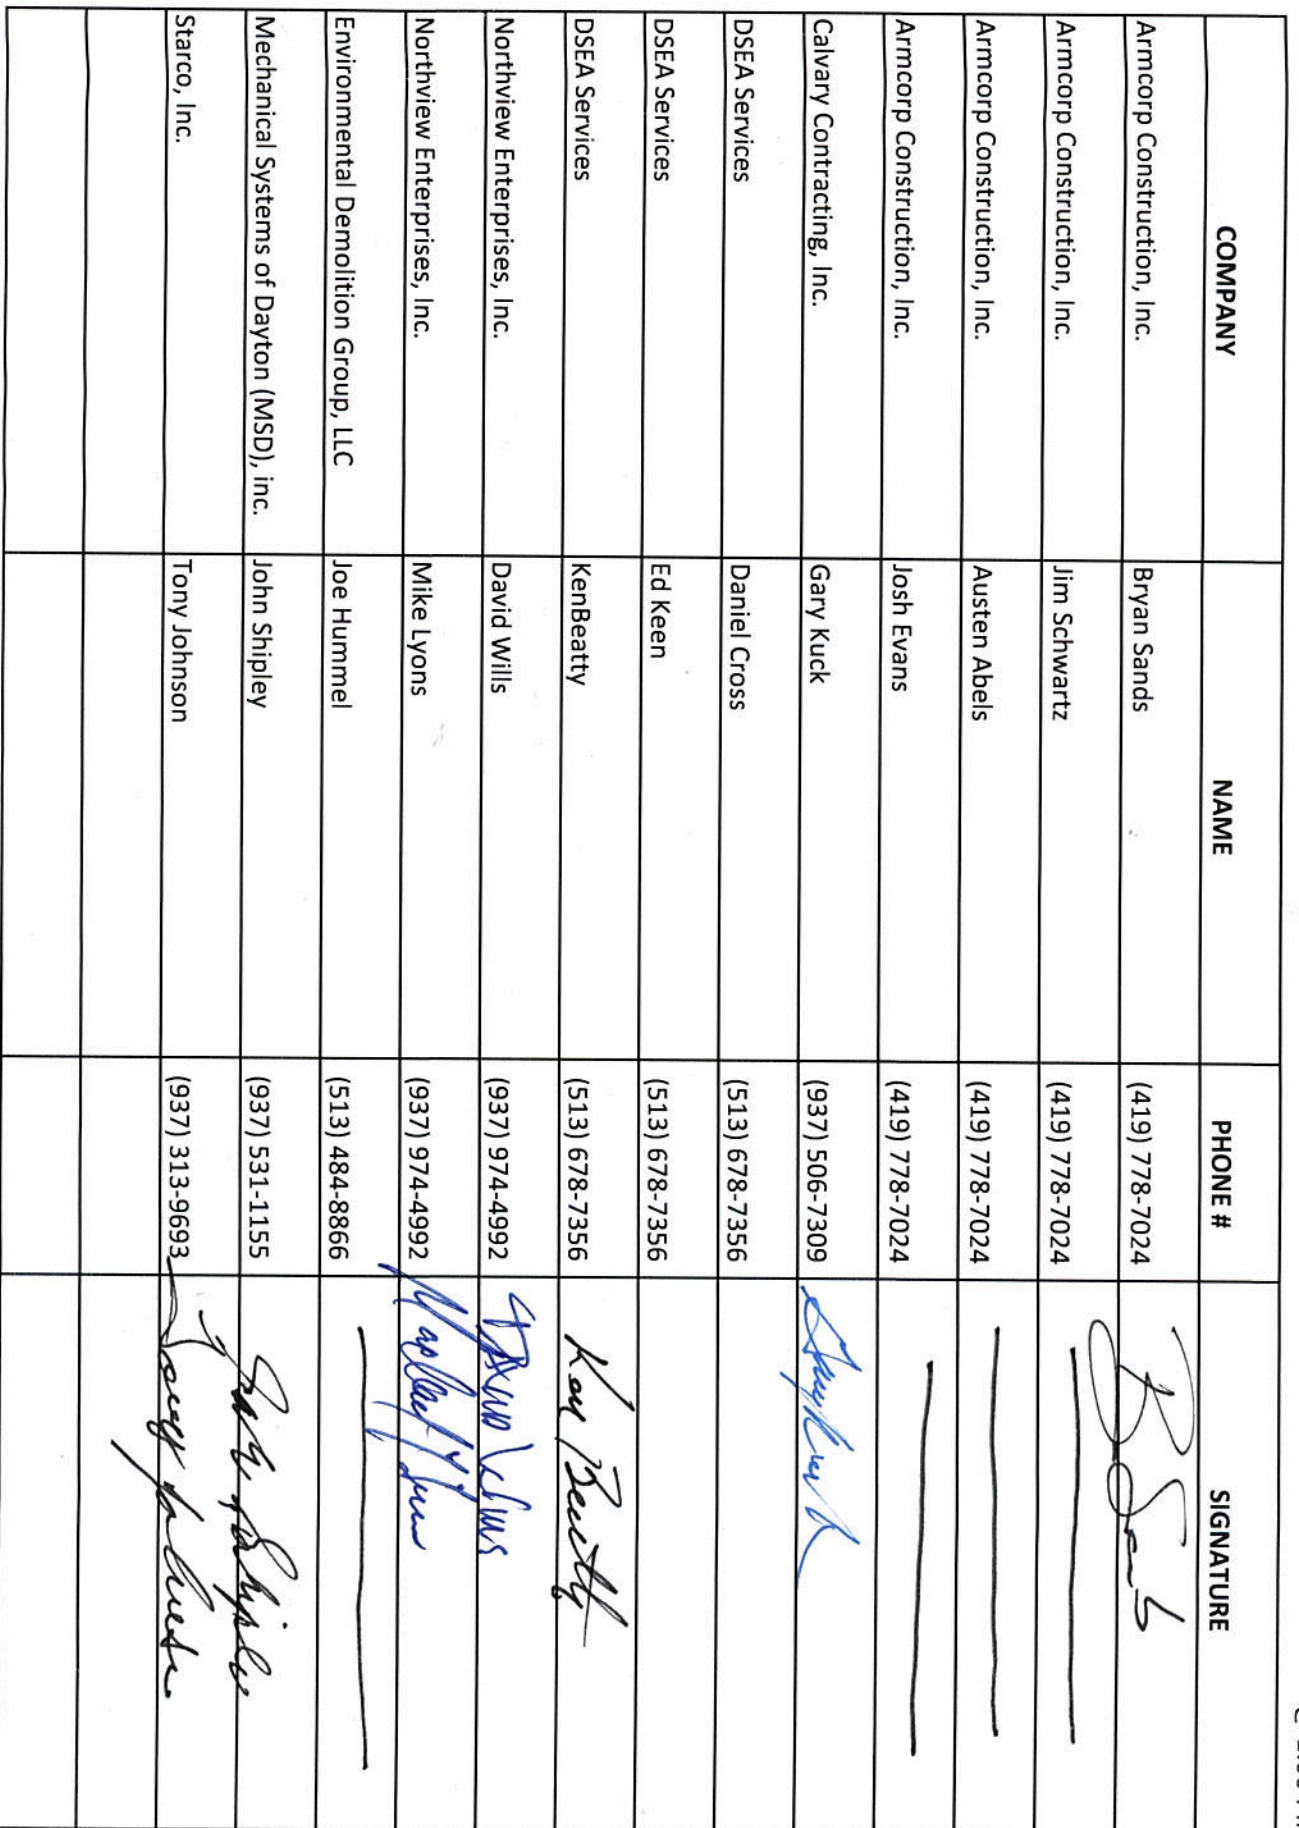 COMPANY NAME PHONE # SIGNATURE
Armcorp Construction, Inc. Bryan Sands (419) 778-7024 B Sands
Armcorp Construction, Inc. Jim Schwartz (419) 778-7024
Armcorp Construction, Inc. Austen Abels (419) 778-7024
Armcorp Construction, Inc. Josh Evans (419) 778-7024
Calvary Contracting, Inc. Gary Kuck (937) 506-7309 Gary Kuck
DSEA Services Daniel Cross (513) 678-7356
DSEA Services Ed Keen (513) 678-7356
DSEA Services KenBeatty (513) 678-7356 Ken Beatty
Northview Enterprises, Inc. David Wills (937) 974-4992 David Wills
Northview Enterprises, Inc. Mike Lyons (937) 974-4992
Environmental Demolition Group, LLC Joe Hummel (513) 484-8866
Mechanical Systems of Dayton (MSD), inc. John Shipley (937) 531-1155 Shipley
Starco, Inc. Tony Johnson (937) 313-9693 Tony Johnson